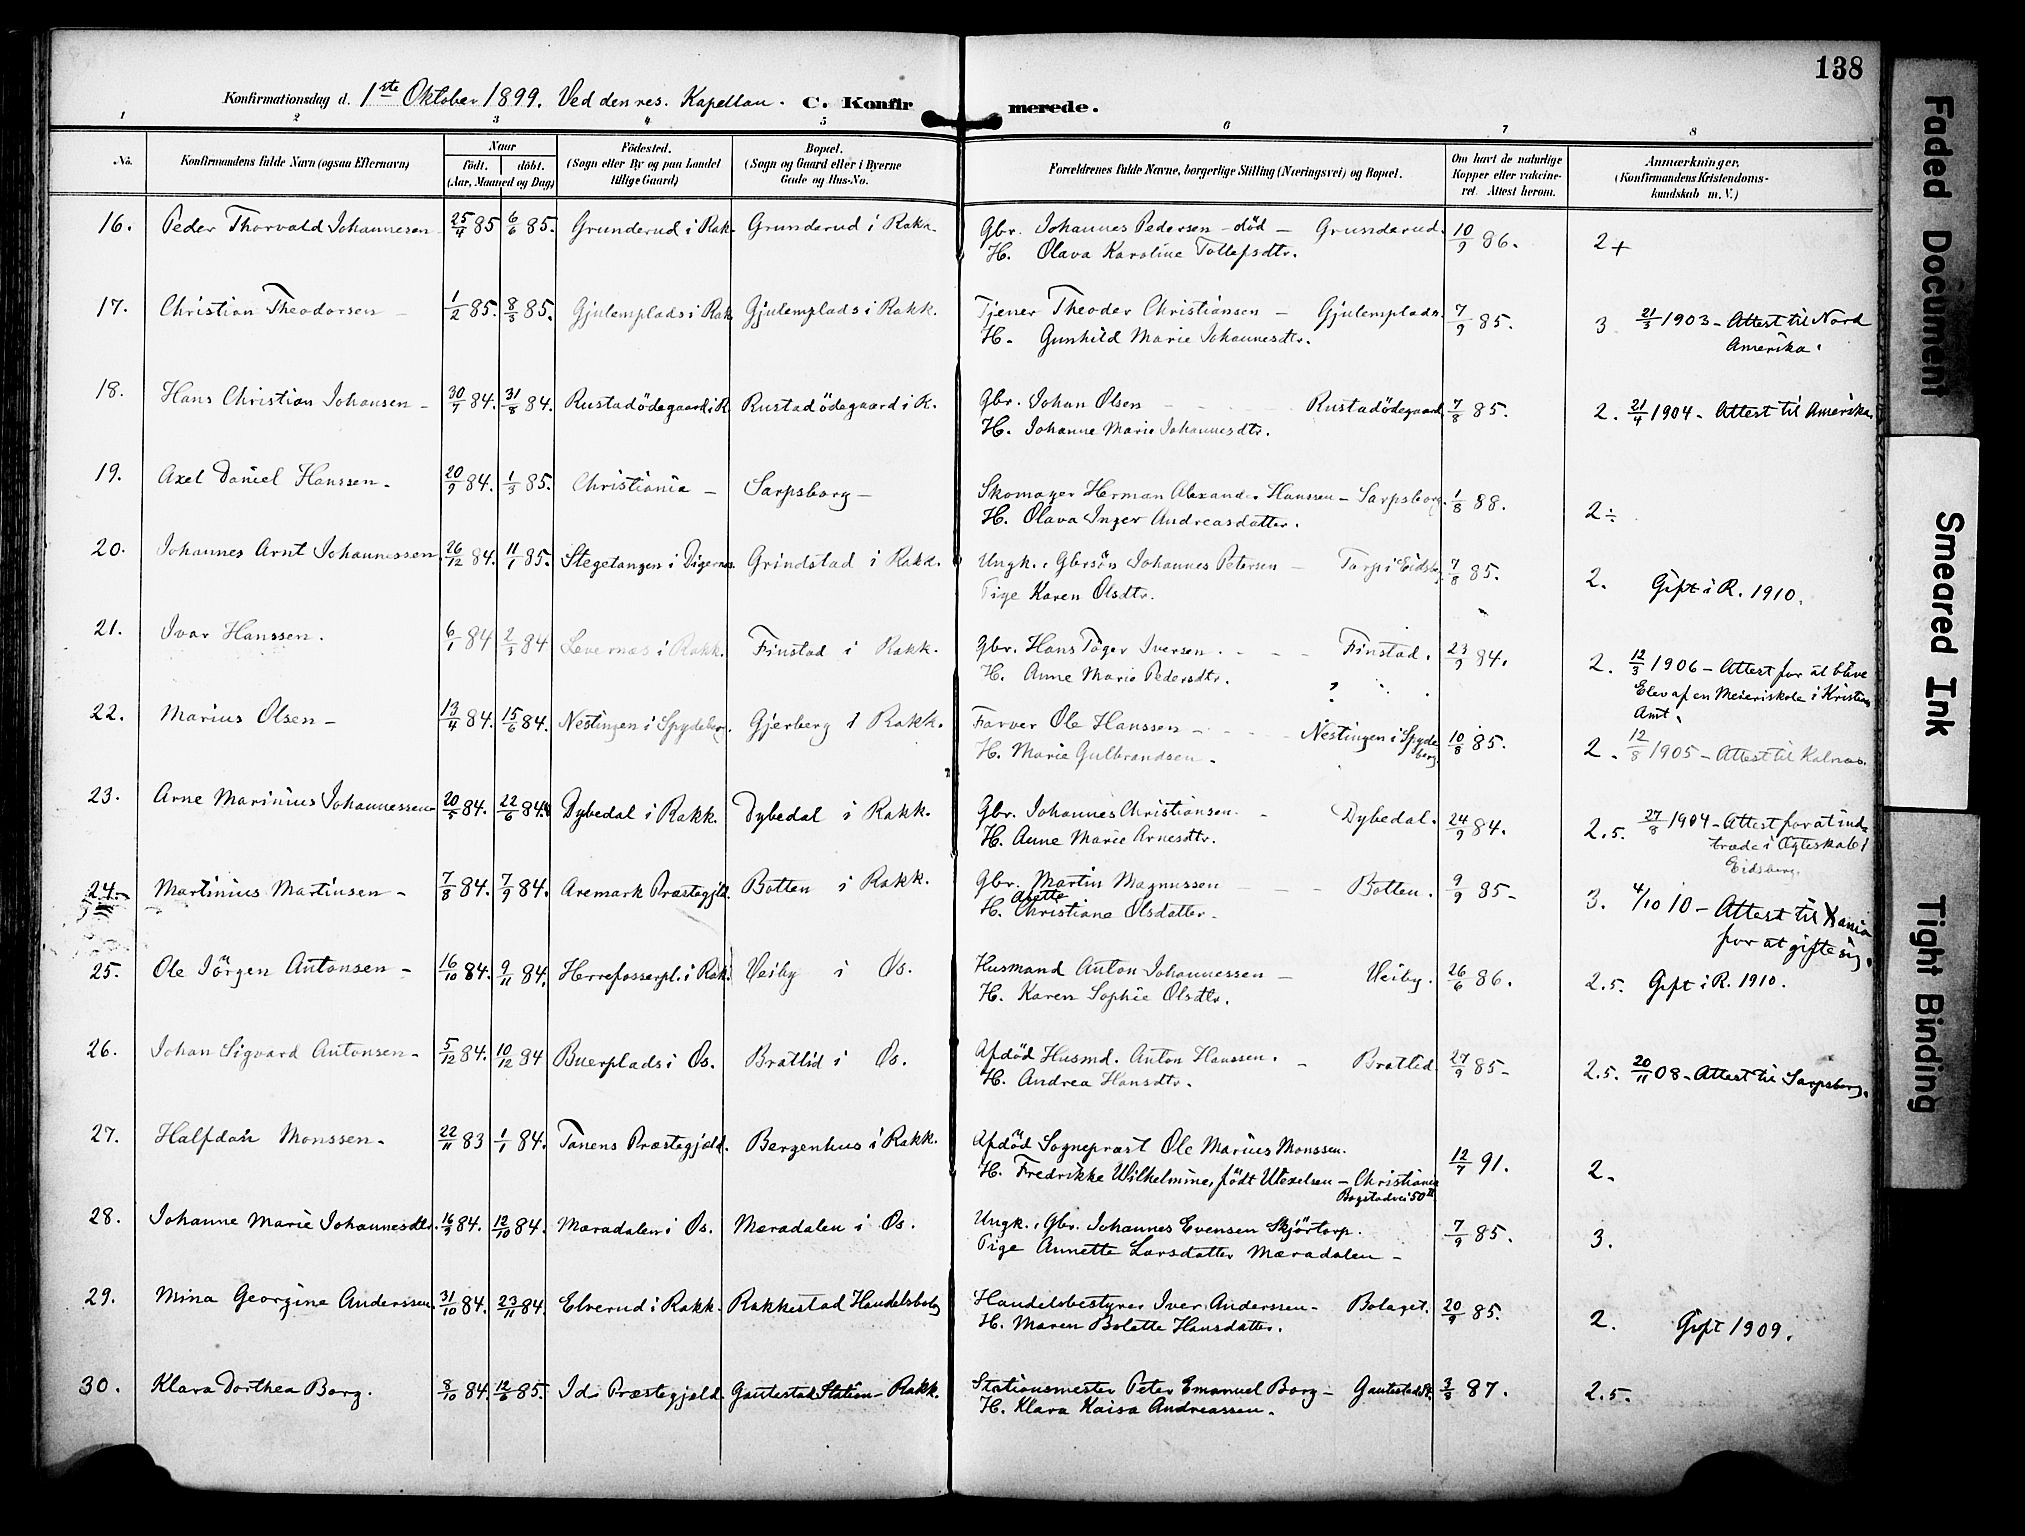 138
Konfirmationsdag d. 1ste Oktober 1899. Ved den res. Kapellan. C. Konfirmerede.
1 2 3 4 5 6 7 8
No. Konfirmandens fulde Navn (ogsaa Efternavn) Naar født. døbt. (Aar, Maaned og Dag) Fødested. (Sogn eller By og paa Landet tillige Gaard) Bopæl. (Sogn og Gaard eller i Byerne Gade og Hus-No. Forældrenes fulde Navne, borgerlige Stilling (Næringsvei) og Bopæl. Om havt de naturlige Kopper eller vaccineret. Attest herom. Anmærkninger. (Konfirmandens Kristendomskundskab m. V.)
16. Peder Thorvald Johannesen 25/4 85 6/6 85. Grunderud i Rak. Grunderud i Rakk. Gbr. Johannes Pedersen - død - Grunderud. 10/9 86. 2+
H. Olava Karoline Tollefsdtr.
17. Christian Theodorsen - 1/2 85. 8/3 85. Gjulemplads i Rak. Gjulemplads i Rakk. Tjener Theodor Christiansen - Gjulemplads. 7/9 85. 3 21/3 1903 - Attest til Nord
H. Gunhild Marie Johannesdtr. Amerika.
18. Hans Christian Johansen - 30/7 84. 31/8 84. Rustadödegaard i R. Rustadödegaard i R. Gbr. Johan Olsen Rustadödegaard 7/8 85. 2. 21/4 1904 - Attest til Amerika.
H. Johanne Marie Johannesdtr.
19. Axel Daniel Hanssen. 20/9 84. 1/3 85. Christiania - Sarpsborg - Skomager Herman Alexander Hanssen - Sarpsborg. 1/8 88. 2÷
H. Olava Inger Andreasdatter.
20. Johannes Arnt Johannessen. 26/12 84. 11/1 85. Stegetangen i Digernes. Grindstad i Rakk. Ungk. Gbrsön Johannes Petersen - Torp i Eidsb. 7/8 85. 2. Gift i R. 1910.
Pige Karen Olsdtr.
21. Ivar Hanssen. 6/1 84 2/3 84 Levernæs i Rakk. Finstad i Rakk. Gbr. Hans Töger Iversen. Finstad. 23/9 84. 2. 12/3 1906 - Attest for at blive
H. Anne Marie Pedersdtr. Elev af en Meieriskole i Kristians
Amt.
22. Marius Olsen - 13/4 84. 15/6 84. Nestingen i Spydeberg. Gjerberg i Rakk. Farver Ole Hanssen - Nestingen i Spydeberg 10/8 85. 2. 12/8 1905 - Attest til Kalnæs.
H. Marie Gulbrandsen.
23. Arne Marinius Johannessen 20/5 84. 22/6 84. Dybedal i Rakk. Dybedal i Rakk. Gbr. Johannes Christiansen. Dybedal. 24/9 84. 2.5. 27/8 1904 - Attest for at ind-
H. Anne Marie Arnesdtr. træde i Ægteskab i
Eidsberg.
24. Martinius Martinsen - 7/8 84. 7/9 84. Aremark Præstegjld. Botten i Rakk. Gbr. Martin Magnussen Botten. 9/9 85 - 3. 4/10 10 - Attest til Xania
H. Christiane Olsdatter - for at gifte sig.
25. Ole Jörgen Antonsen - 16/10 84. 9/11 84. Herrefosserpl. i Rak. Veiby i Øs. Husmand Anton Johannessen - Veiby. 26/6 86. 2.5. Gift i R. 1910.
H. Karen Sophie Olsdtr.
26. Johan Sigvard Antonsen - 5/12 84. 10/12 84 Buerplads i Øs. Bratlid i Øs. Afdöd Husmd. Anton Hanssen. - Bratlid 27/9 85 - 2.5. 20/11 08 - Attest til Sarpsborg.
H. Andrea Hansdtr.
27. Halfdan Monssen - 22/11 83 1/1 84. Tanens Præstegjeld. Bergenhus i Rakk. Afdöd Sognepræst Ole Marius Monssen. 12/7 91. 2.
H. Fredrikke Wilhelmine, födt Utexelsen - Christiania
Bogstadvei 50 II
28. Johanne Marie Johannesdtr. 16/9 84. 12/10 84. Mæradalen i Øs. Mæradalen i Øs. Ungk. Gbr. Johannes Evensen Skjörtorp. 7/9 85. 3.
Pige Annette Larsdatter Mæradalen -
29. Mina Georgine Anderssen. 31/10 84. 23/11 84. Elverud i Rakk. Rakkestad Handelsbolag Handelsbestyrer Iver Anderssen - Bolaget. 20/9 85. 2. Gift 1909.
H. Maren Bolette Hansdatter.
30. Klara Dorthea Borg. 8/10 84. 12/6 85. Id Præstegjeld. Gautestad Station - Rakk. Stationsmester Peter Emanuel Borg - Gautestad St. 3/8 87. 2.5.
H. Klara Kaisa Andreassen.
Faded Document
Smeared Ink
Tight Binding